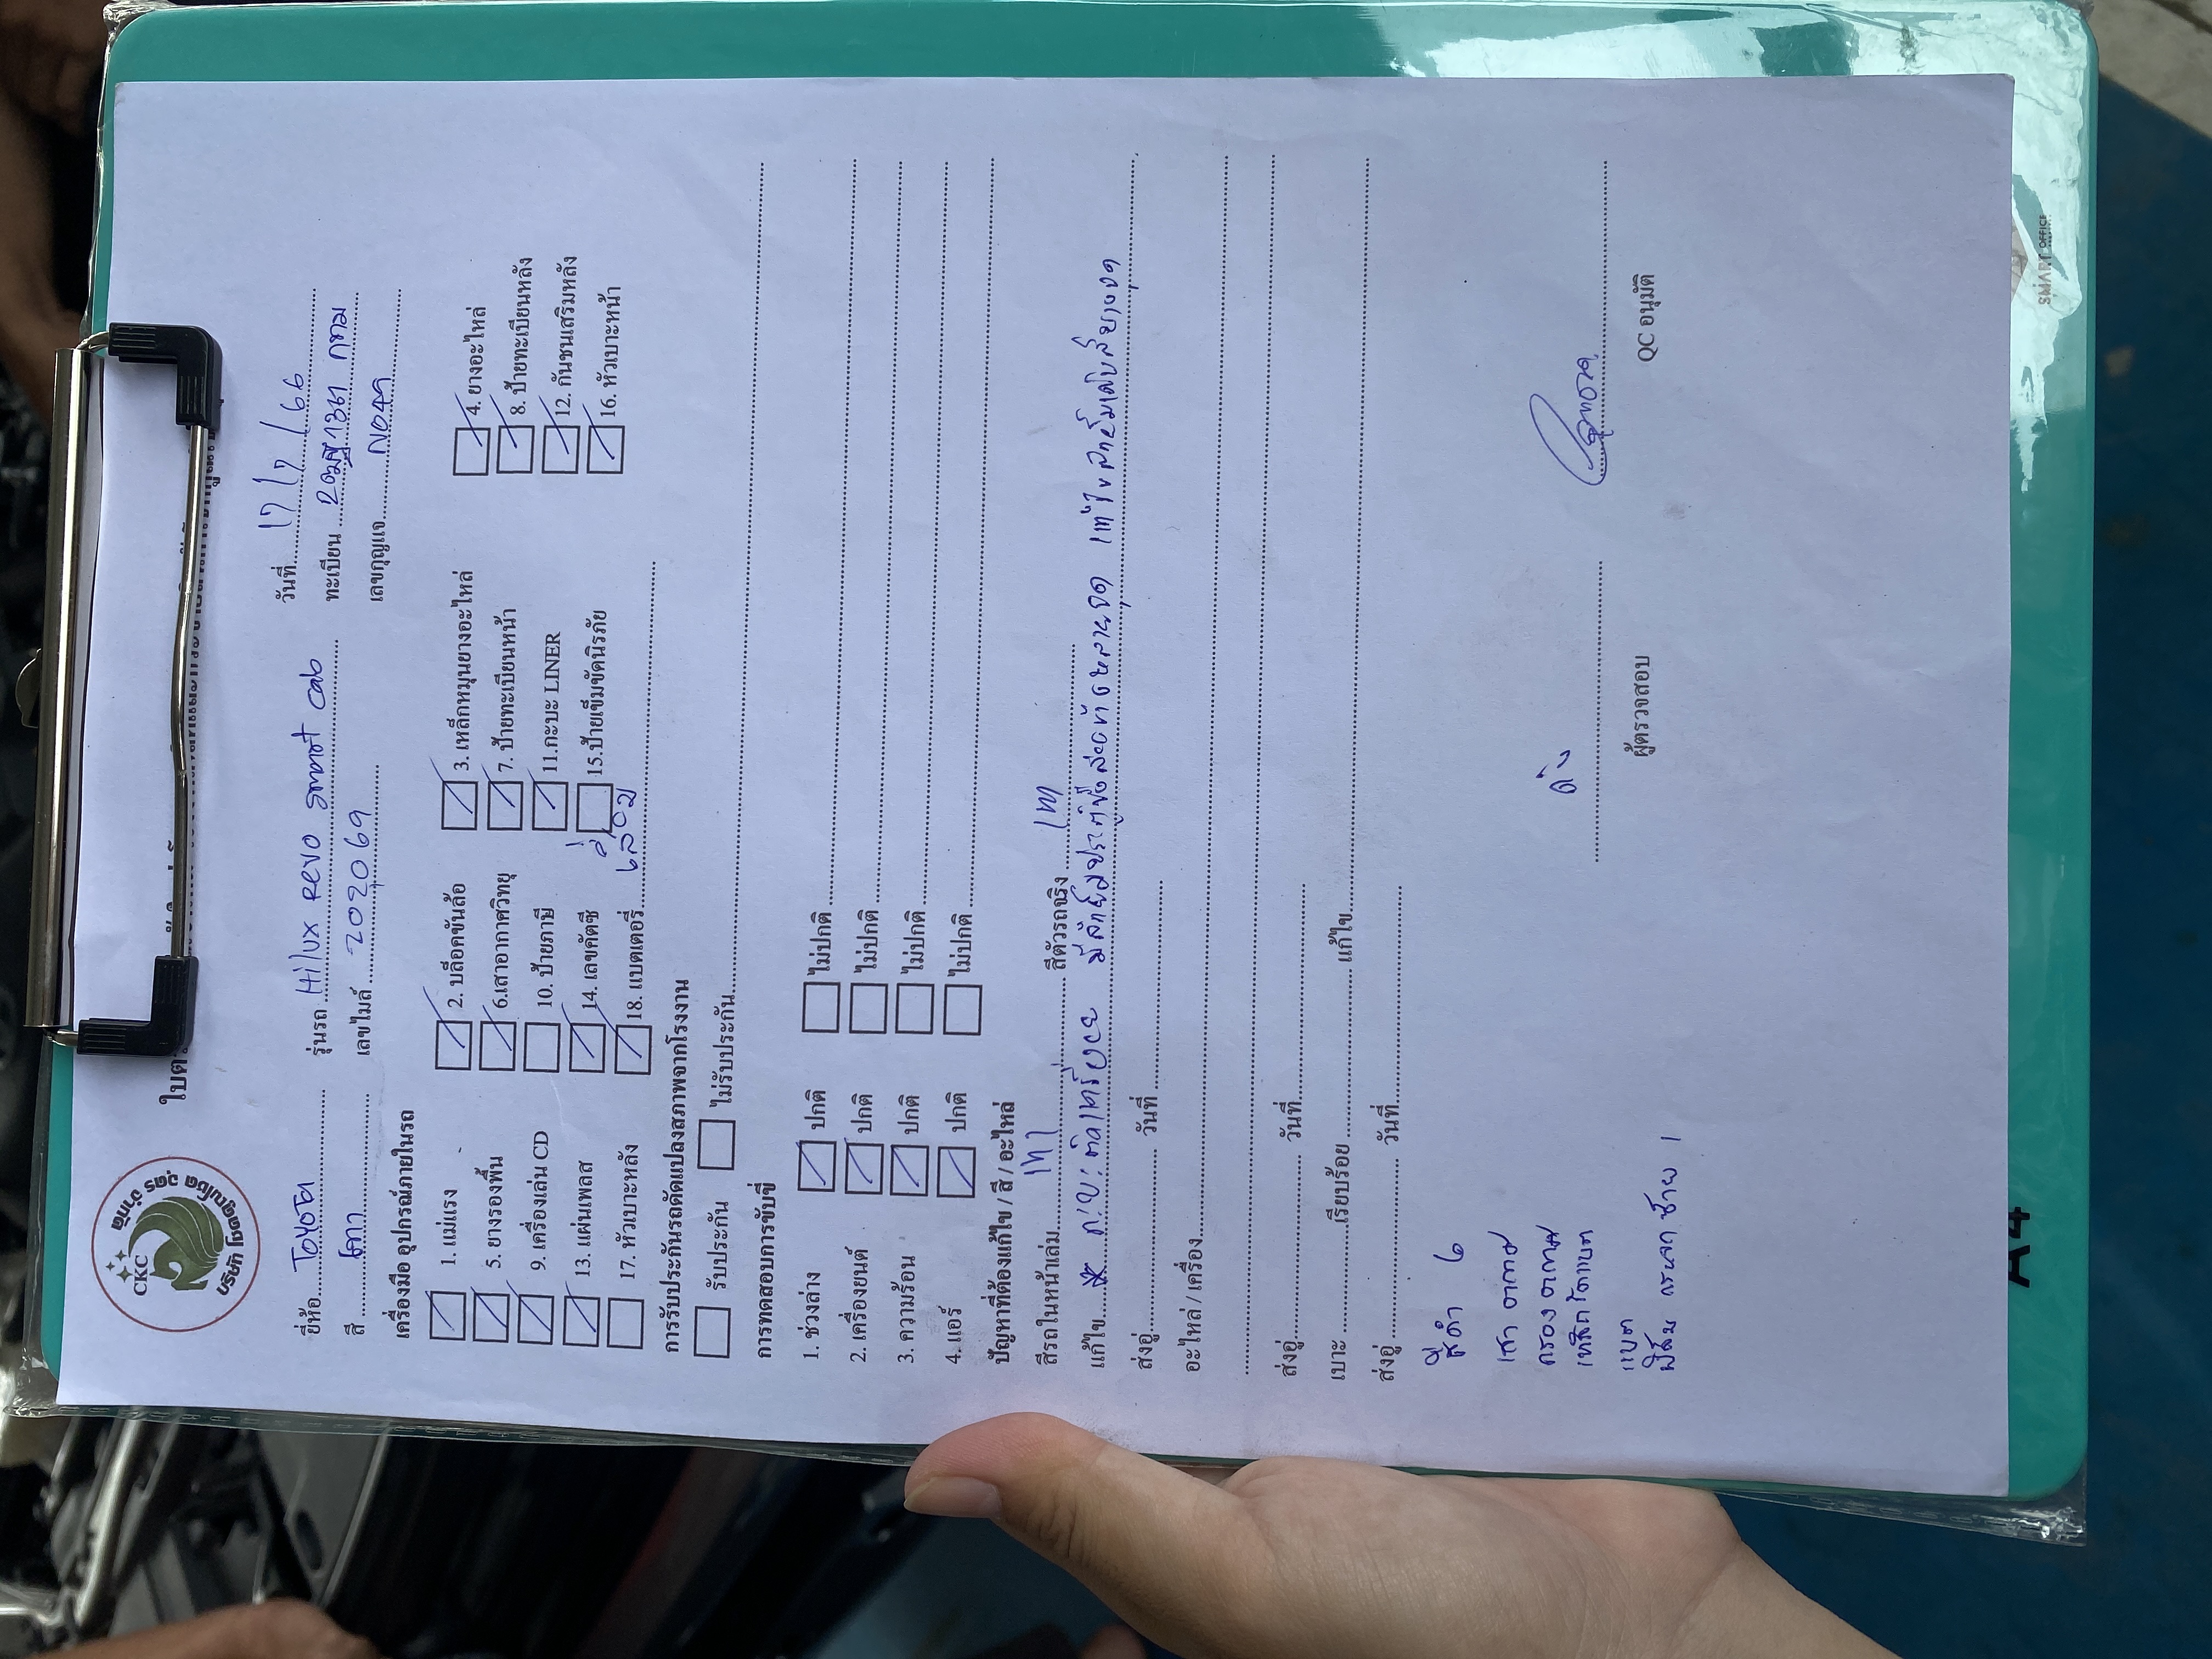 CKC
บริษัท โชคคูณโชค วูดร จำกัด
ยี่ห้อ TOYOTA รุ่นรถ Hilux REVO smart cab วันที่ 17/7/66
สี เทา เลขไมล์ 202069 ทะเบียน
เลขกุญแจ
เครื่องมือ อุปกรณ์ภายในรถ
1. แม่แรง 2. บล็อคขันล้อ 3. เหล็กหมุนยางอะไหล่ 4. ยางอะไหล่
5. ยางรองพื้น 6.เสาอากาศวิทยุ 7. ป้ายทะเบียนหน้า 8. ป้ายทะเบียนหลัง
9. เครื่องเล่น CD 10. ป้ายภาษี 11.กะบะ LINER 12. กันชนเสริมหลัง
13. แผ่นเพลส 14. เลขคัตซี 15.ป้ายเข็มขัดนิรภัย 16. หัวเบาะหน้า
17. หัวเบาะหลัง 18. แบตเตอรี่ เสื่อม
การรับประกันรถดัดแปลงสภาพจากโรงงาน
รับประกัน ไม่รับประกัน
การทดสอบการขับขี่
1. ช่วงล่าง ปกติ ไม่ปกติ
2. เครื่องยนต์ ปกติ ไม่ปกติ
3. ความร้อน ปกติ ไม่ปกติ
4. แอร์ ปกติ ไม่ปกติ
ปัญหาที่ต้องแก้ไข / สี / อะไหล่
สีรถในหน้าเล่ม เทา สีตัวรถจริง เทา
แก้ไข
ส่งอู่ วันที่
อะไหล่ / เครื่อง
ส่งอู่ วันที่
เบาะ เรียบร้อย แก้ไข
ส่งอู่ วันที่
สีดำ 6
เสา อากาศ
กรอง อากาศ
แบต
ผู้ตรวจสอบ QC อนุมัติ
SMART OFFICE
A4